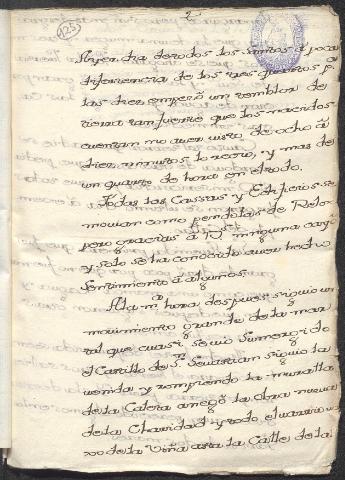 2
125
Ayer dia de todos los santos a poca
diferencia de los tres quartos pª
las diez empezô un temblor de
tierra tan fuerte que los nacidos
cuentan no aver visto de ocho â
diez minutos lo recio, y mas de
un quarto de hora en todo.
Todas las Cassas y Edificios se
movian como pendolas de Relo
pero gracias a Dˢ ninguna cayô
y solo se ha conocido aver hecho
sentimiento â algunos.
A la mª hora despues siguio un
movimiento grande de la mar
tal que cuasi se vio sumergido
el Castillo de Sⁿ Sevastian siguio la
venida y rompiendo la muralla
de la Caleta anegô la obra nueva
de la Charidad y todo el varrio
de la Viña asta la Calle de la